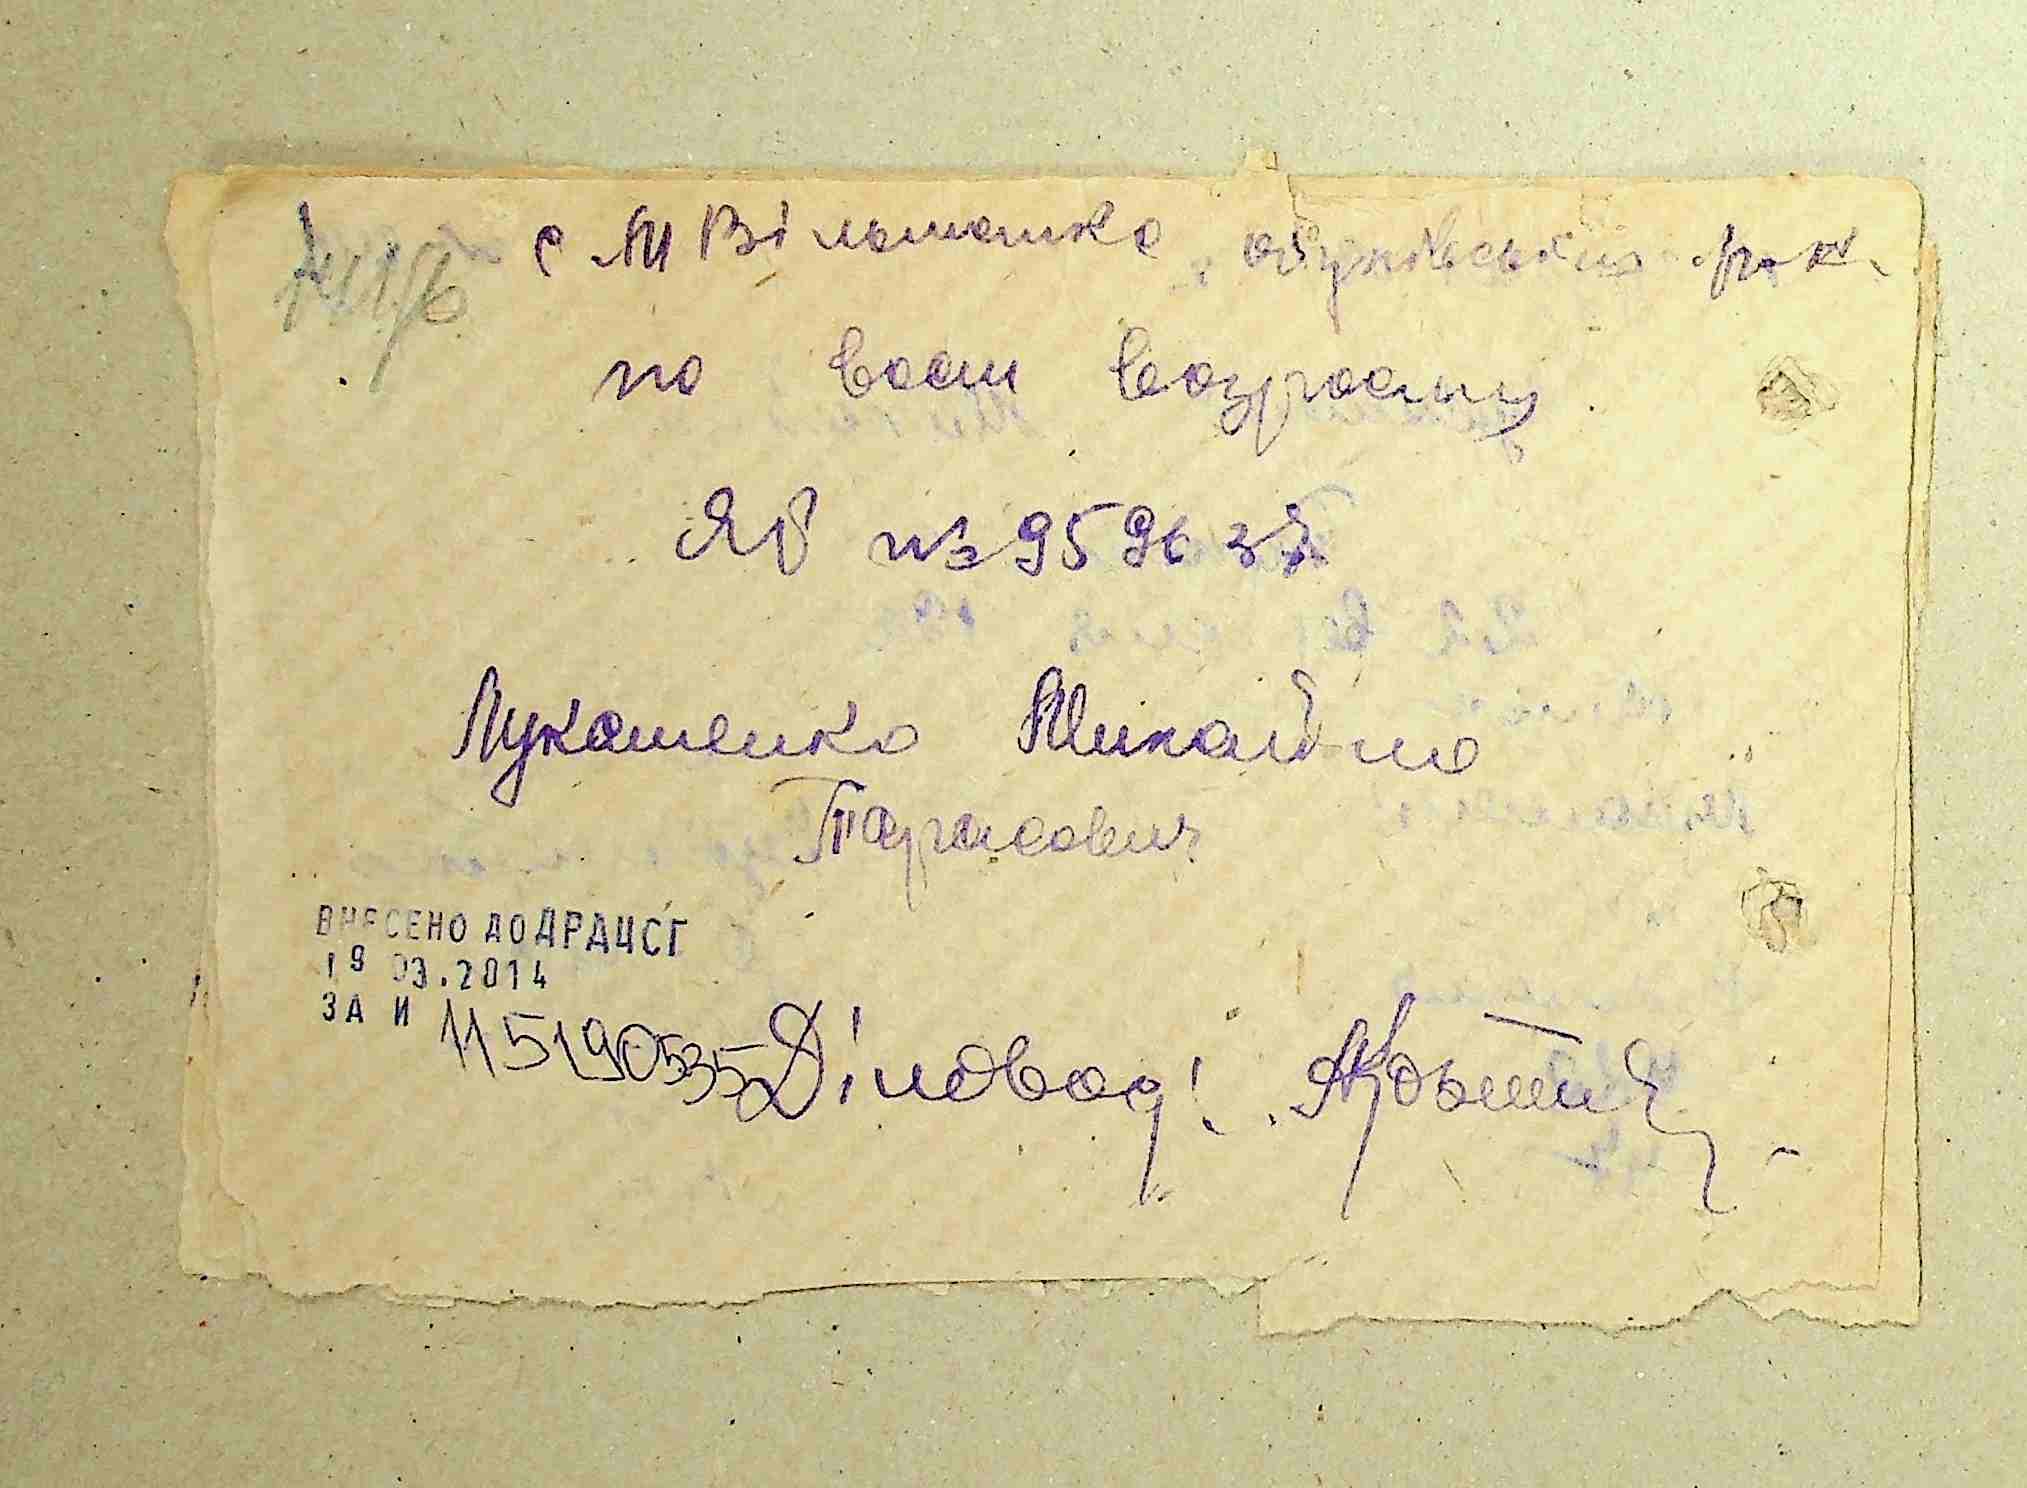 с М Вільшанка, Обухівський р-н.
по восп возрасту
ЯВ № 959637
Лукашенко Михайло
Тарасович
ВНЕСЕНО ДО ДРАЦСГ
19 03.2014
ЗА И 115190535 Діловод: